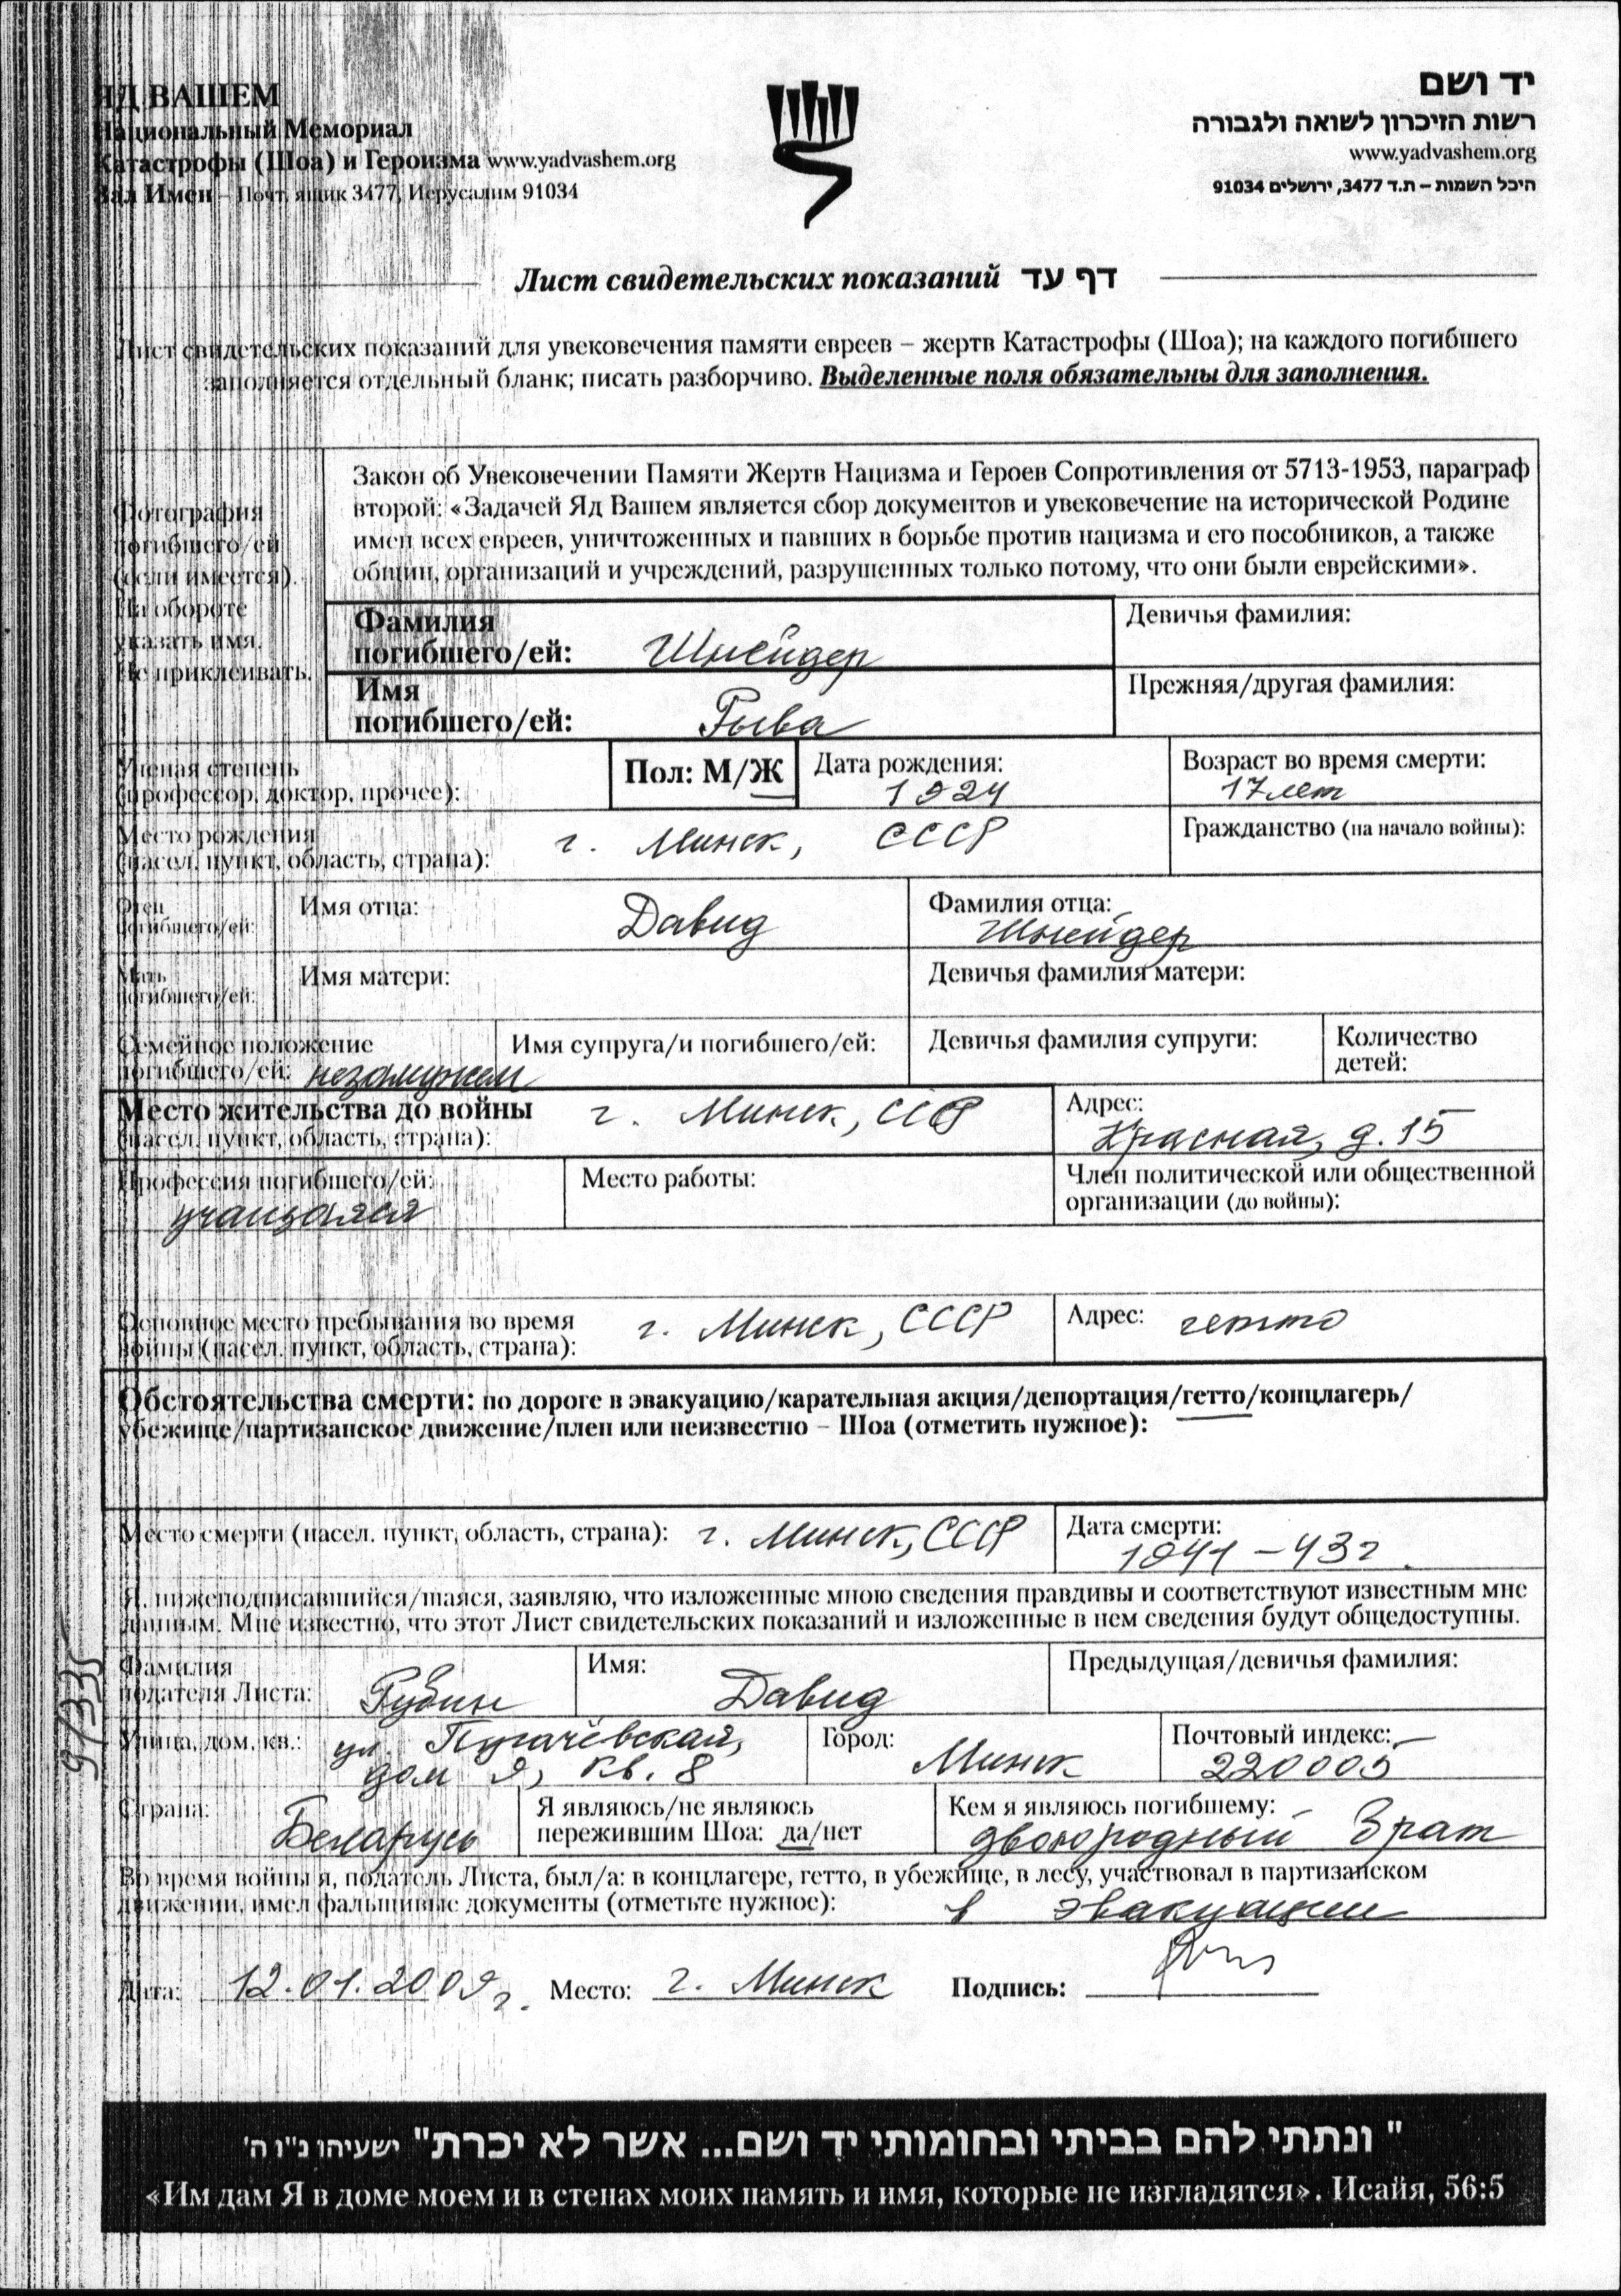 ЯД ВАШЕМ
Национальный Мемориал
Катастрофы (Шоа) и Героизма www.yadvashem.org
Зал Имен – Почт. ящик 3477, Иерусалим 91034
יד ושם
רשות הזיכרון לשואה ולגבורה
www.yadvashem.org
היכל השמות – ת.ד 3477, ירושלים 91034
Лист свидетельских показаний דף עד
Лист свидетельских показаний для увековечения памяти евреев – жертв Катастрофы (Шоа); на каждого погибшего
заполняется отдельный бланк; писать разборчиво. Выделенные поля обязательны для заполнения.
Фотография
погибшего/ей
(если имеется).
На обороте
указать имя.
Не приклеивать.
Закон об Увековечении Памяти Жертв Нацизма и Героев Сопротивления от 5713-1953, параграф
второй: «Задачей Яд Вашем является сбор документов и увековечение на исторической Родине
имен всех евреев, уничтоженных и павших в борьбе против нацизма и его пособников, а также
общин, организаций и учреждений, разрушенных только потому, что они были еврейскими».
Фамилия
погибшего/ей: Шнейдер
Девичья фамилия:
Имя
погибшего/ей: Рыва
Прежняя/другая фамилия:
Ученая степень
(профессор, доктор, прочее):
Пол: М/Ж
Дата рождения:
1924
Возраст во время смерти:
17 лет
Место рождения
(насел. пункт, область, страна): г. Минск, СССР
Гражданство (на начало войны):
Отец
погибшего/ей:
Имя отца: Давид
Фамилия отца:
Шнейдер
Мать
погибшего/ей:
Имя матери:
Девичья фамилия матери:
Семейное положение
погибшего/ей: незамужем
Имя супруга/и погибшего/ей:
Девичья фамилия супруги:
Количество
детей:
Место жительства до войны
(насел. пункт, область, страна): г. Минск, СССР
Адрес:
Красная, д. 15
Профессия погибшего/ей:
учащаяся
Место работы:
Член политической или общественной
организации (до войны):
Основное место пребывания во время
войны (насел. пункт, область, страна): г. Минск, СССР
Адрес: гетто
Обстоятельства смерти: по дороге в эвакуацию/карательная акция/депортация/гетто/концлагерь/
убежище/партизанское движение/плен или неизвестно – Шоа (отметить нужное):
Место смерти (насел. пункт, область, страна): г. Минск, СССР
Дата смерти:
1941 – 43 г.
Я, нижеподписавшийся/шаяся, заявляю, что изложенные мною сведения правдивы и соответствуют известным мне
данным. Мне известно, что этот Лист свидетельских показаний и изложенные в нем сведения будут общедоступны.
Фамилия
подателя Листа: Рубин
Имя: Давид
Предыдущая/девичья фамилия:
Улица, дом, кв.: ул. Пугачёвская,
дом 9, кв. 8
Город: Минск
Почтовый индекс:
220005
Страна: Беларусь
Я являюсь/не являюсь
пережившим Шоа: да/нет
Кем я являюсь погибшему:
двоюродный брат
Во время войны я, податель Листа, был/а: в концлагере, гетто, в убежище, в лесу, участвовал в партизанском
движении, имел фальшивые документы (отметьте нужное): в эвакуации
Дата: 12.01.2009 г. Место: г. Минск Подпись:
9/335
" ונתתי להם בביתי ובחומותי יד ושם... אשר לא יכרת" ישעיהו נ"ו ה'
«Им дам Я в доме моем и в стенах моих память и имя, которые не изгладятся». Исайя, 56:5